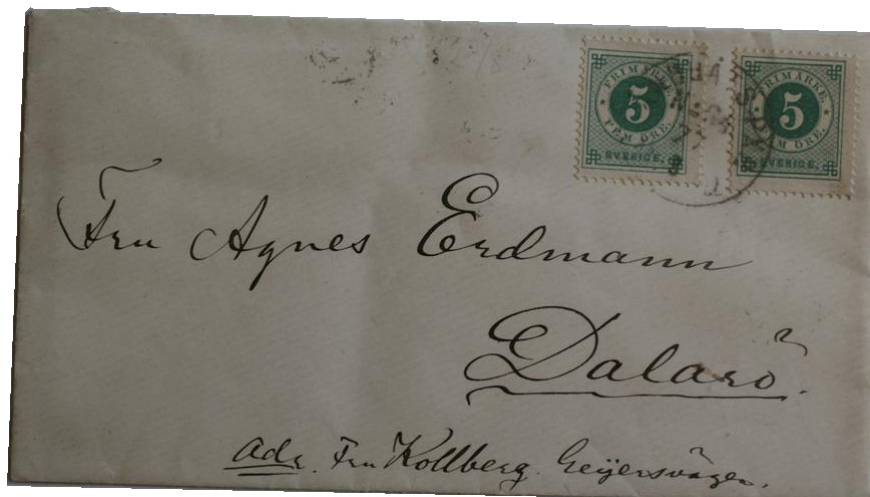 FRIMÄRKE
5
FEM ÖRE.
SVERIGE.
FRIMÄRKE.
5
FEM ÖRE.
SVERIGE.
Fru Agnes Erdmann
Dalarö.
Adr. Fru Kollberg. Geijersvägen.